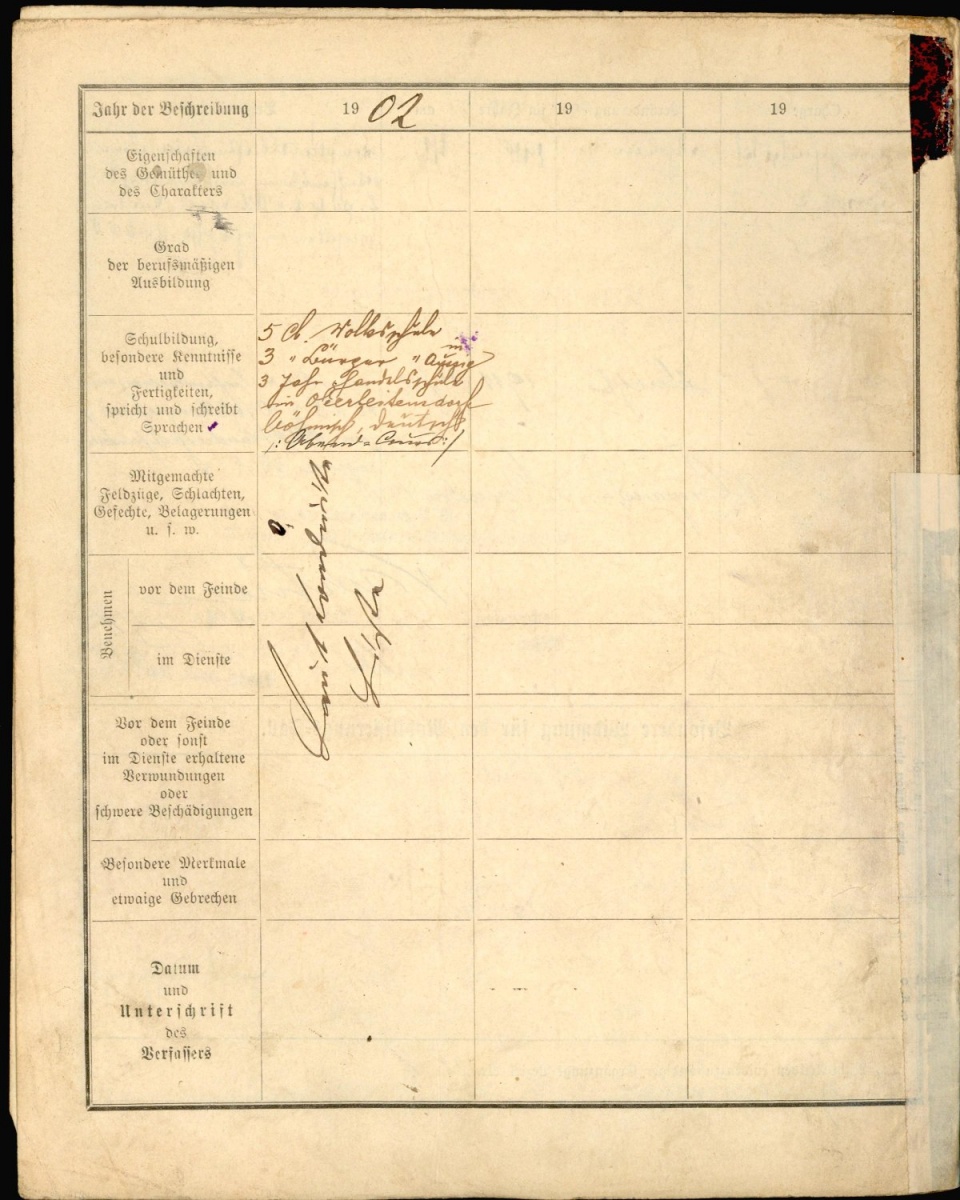 Jahr der Beschreibung
1902
19
19
Eigenschaften
des Gemüthes und
des Charakters
Grad
der berufsmäßigen
Ausbildung
Schulbildung,
besondere Kenntnisse
und
Fertigkeiten,
spricht und schreibt
Sprachen
5 Cl. Volksschule
3 " Bürger " in Aussig
3 Jahr Handelsschule
in Oberleitensdorf
böhmisch, deutsch
/: Abend-Cours :/
Mitgemachte
Feldzüge, Schlachten,
Gefechte, Belagerungen
u. s. w.
Benehmen
vor dem Feinde
im Dienste
Vor dem Feinde
oder sonst
im Dienste erhaltene
Verwundungen
oder
schwere Beschädigungen
Besondere Merkmale
und
etwaige Gebrechen
Datum
und
Unterschrift
des
Verfassers